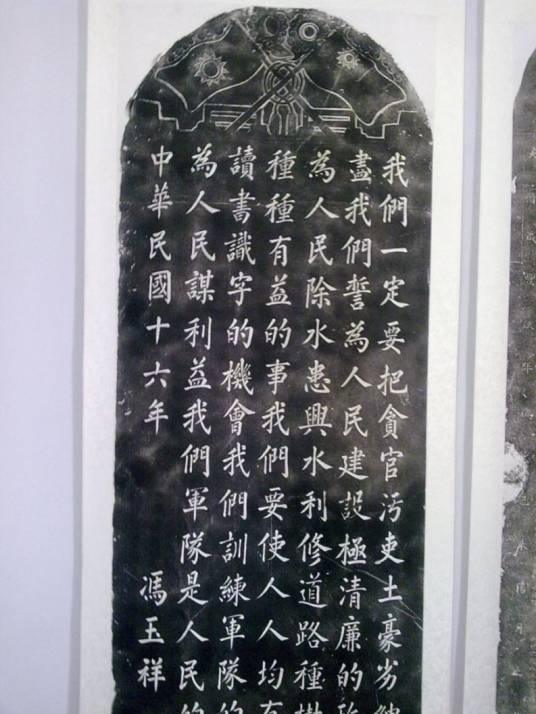 我們一定要把貪官污吏土豪劣紳
盡我們誓為人民建設極清廉的政
為人民除水患興水利修道路種樹
種種有益的事我們要使人人均有
讀書識字的機會我們訓練軍隊的
為人民謀利益我們軍隊是人民的
中華民國十六年 馮玉祥